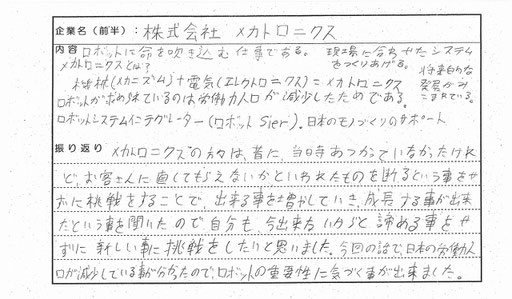 企業名(前半): 株式会社 メカトロニクス
内容 ロボットに命を吹き込む仕事である。 現場に合わせたシステム
メカトロニクスとは? をつくりあげる。
機械(メカニズム)+電気(エレクトロニクス)=メカトロニクス 将来的な
ロボットが求められているのは労働力人口が減少したためである。 発展が
こまれている。
ロボットシステムインテグレーター(ロボットSier)。日本のモノづくりのサポート
振り返り メカトロニクスの方々は、昔に、当時あつかっていなかったけれ
ど、お客さんに直してもらえないかといわれたものを断るという事をせ
ずに挑戦をすることで、出来る事を増やしていき、成長する事が出来
たという事を聞いたので自分も、今出来ないからと諦める事をせ
ずに新しい事に挑戦をしたいと思いました。今回の話で、日本の労働力人
口が減少している事が分かったので、ロボットの重要性に気づく事が出来ました。